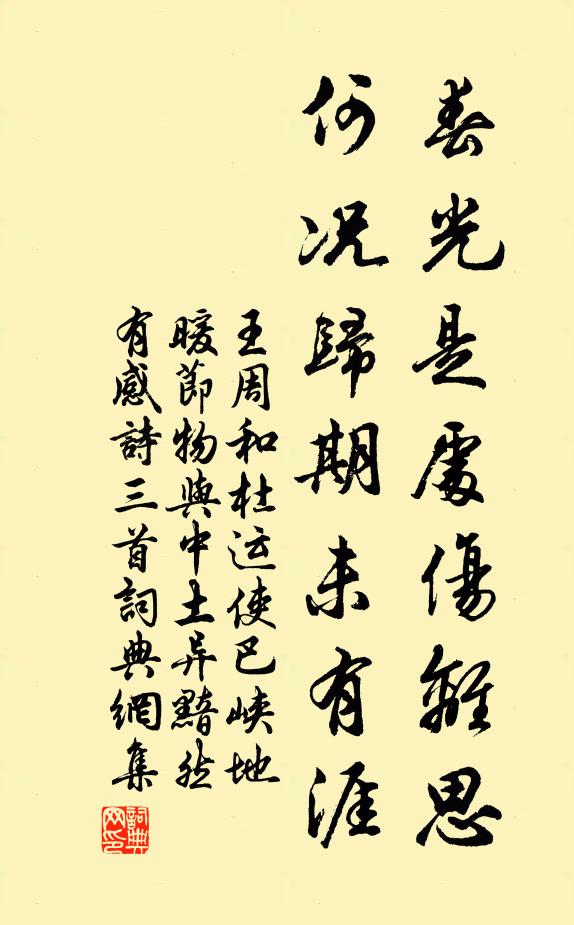 春光是處傷離思
何況歸期未有涯
王周和杜运使巴峡地
暖節物與中土异黯然
有感詩三首詞典網集
詞典
网印